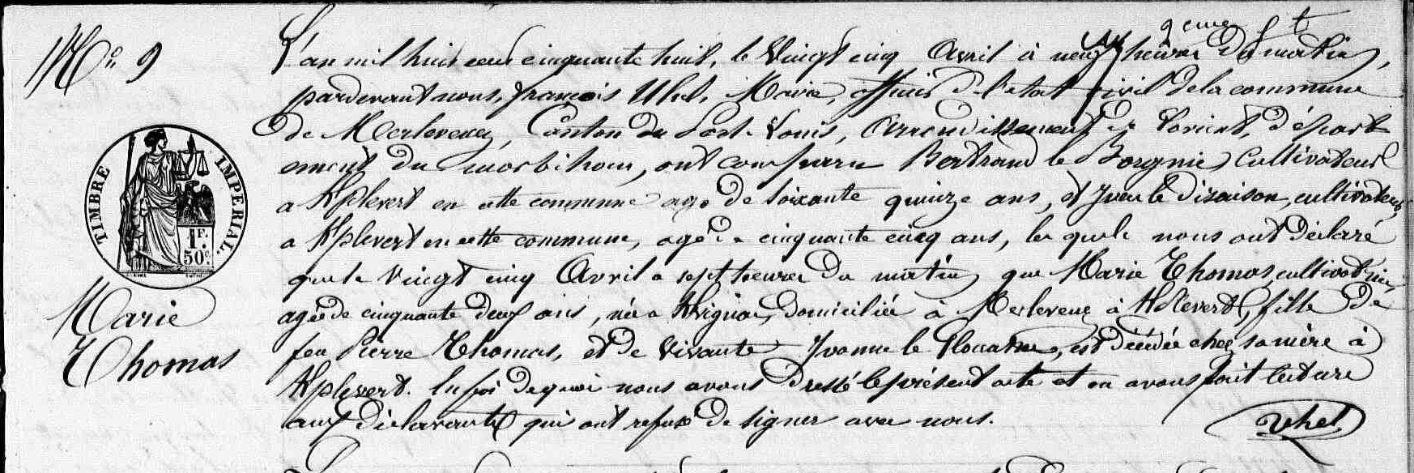 2eme f t
N° 9
L'an mil huit cent cinquante huit, le vingt cinq Avril à neuf heures du matin,
pardevant nous, françois Uhel, Maire, officier de l'état civil de la commune
de Merlevenez, Canton du Port-Louis, Arrondissement de Lorient, départ
ement du morbihan, ont comparu Bertrand le Borgnic cultivateur
a Kplevert en cette commune agé de soixante quinze ans, et le cultivateur
a Kplevert en cette commune, agé de cinquante cinq ans, les quels nous ont déclaré
que le vingt cinq Avril a sept heures du matin que Marie Thomas, cultivatrice
agée de cinquante deux ans, née a domiciliée à Merlevenez à Kplevert, fille de
feu Pierre Thomas, et de vivante Yvonne le est décédée chez sa mère à
Kplevert. En foi de quoi nous avons dressé le présent acte et en avons fait lecture
aux déclarants qui ont refusé de signer avec nous.
Uhel
TIMBRE IMPERIAL.
1F.
50c.
Marie
Thomas